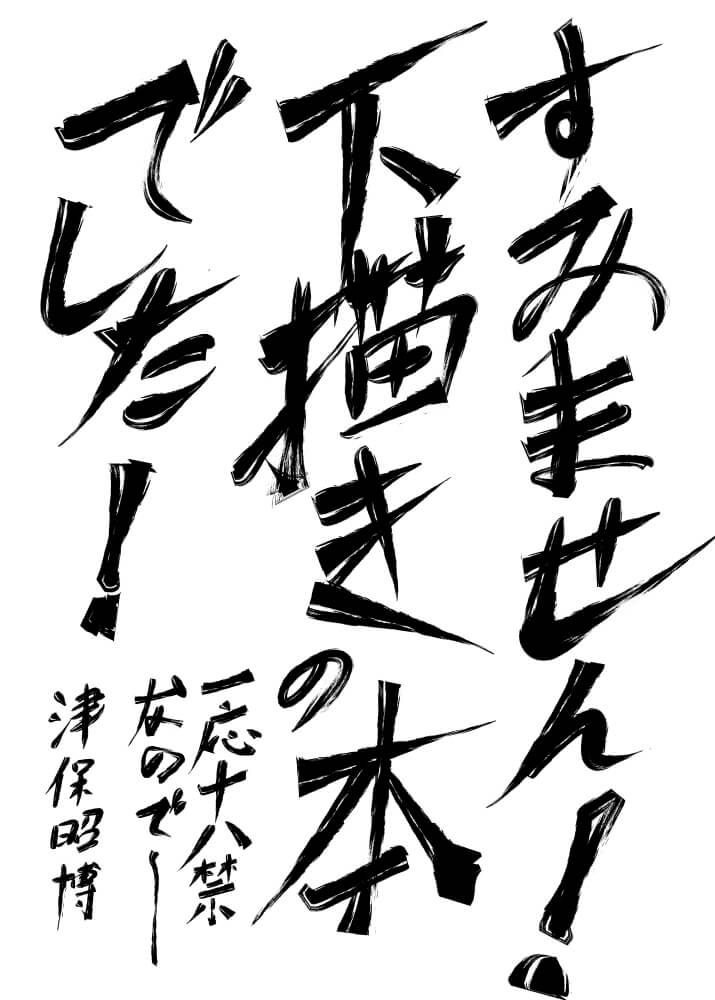 すみません!
下描きの本
でした!
一応十八禁
なのでー
津保昭博